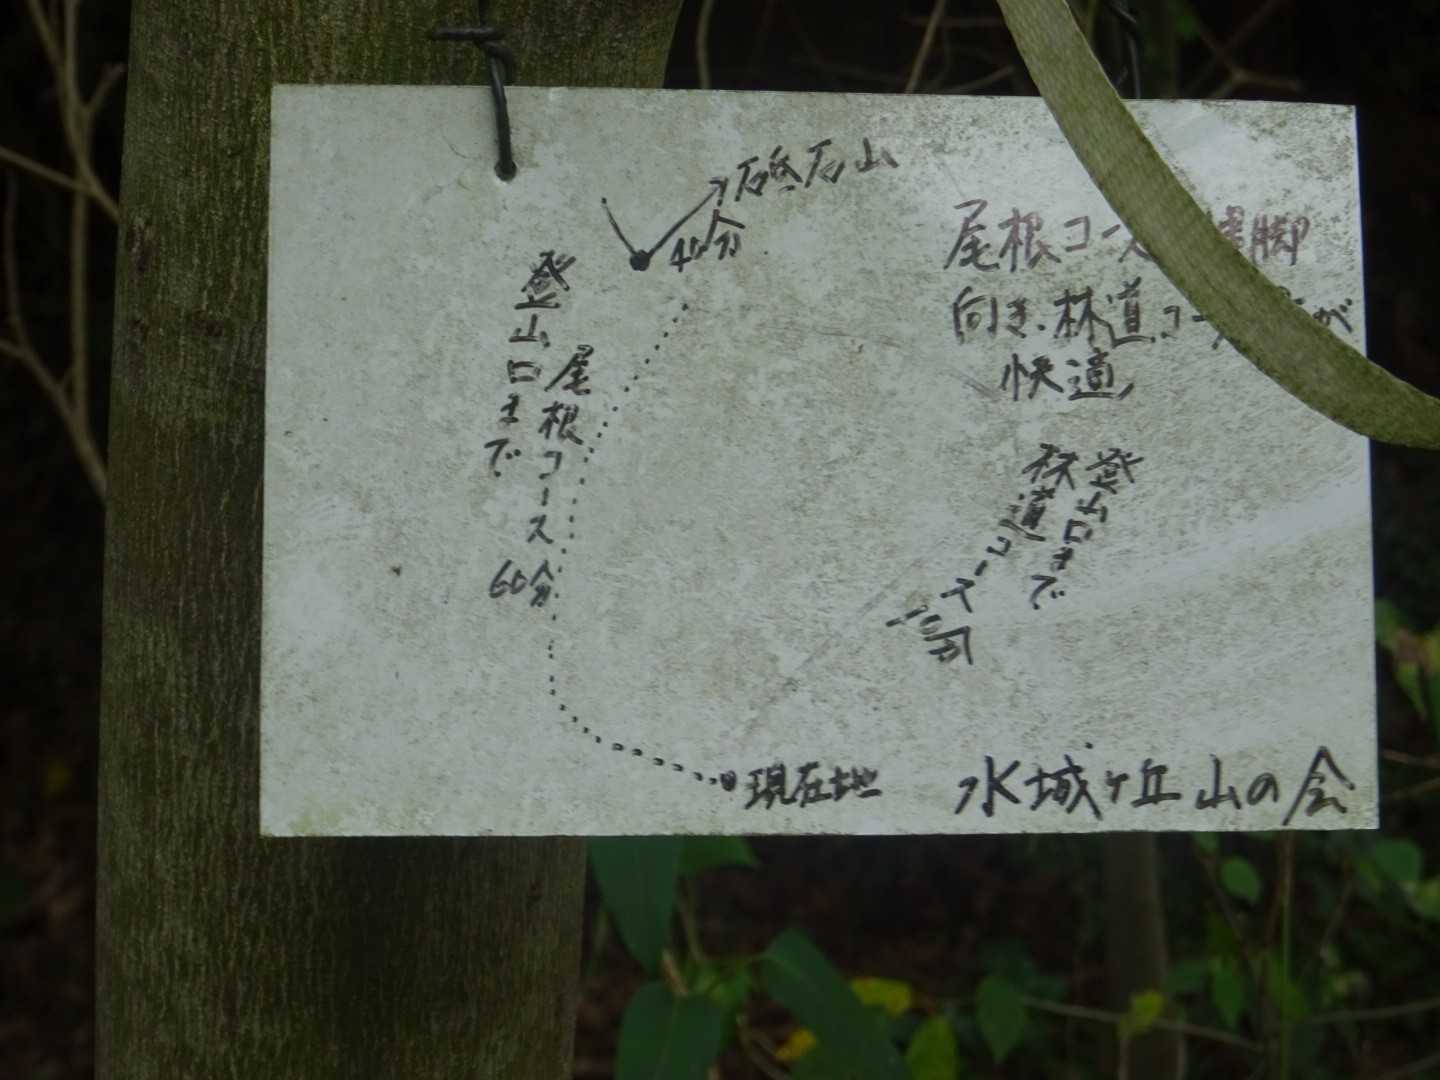 砥石山
40分
登山口まで
尾根コース
60分
尾根コース 健脚
向き、林道コー が
快適
登山口まで
林道コース
10分
現在地
水城ヶ丘山の会